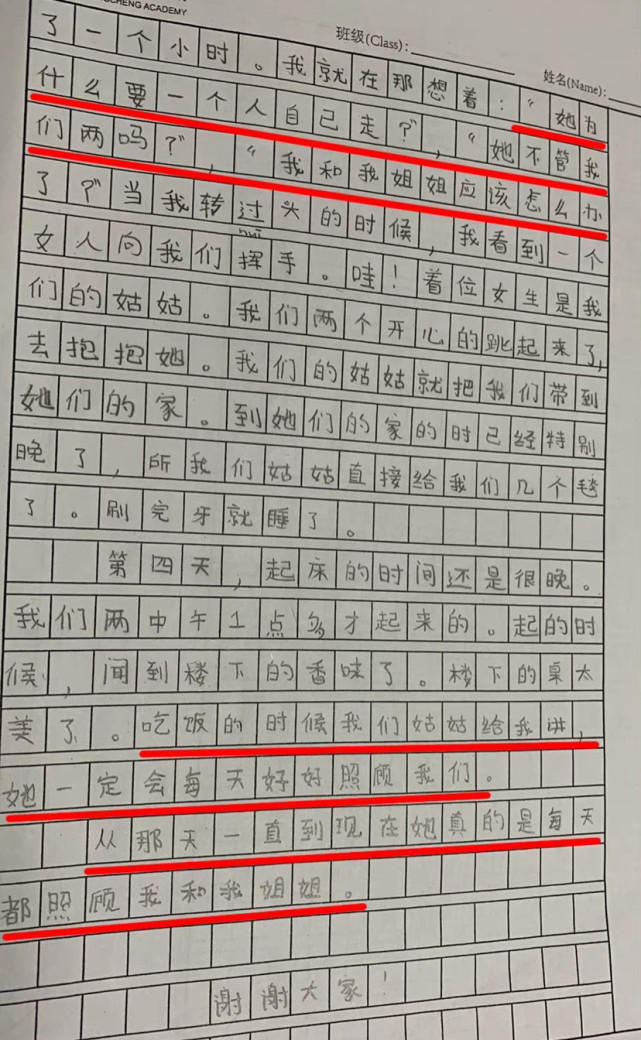 CHENG ACADEMY
班级(Class):
姓名(Name):
了一个小时。我就在那想着:“她为
什么要一个人自己走?”,“她不管我
们两吗?”,“我和我姐姐应该怎么办
了?”当我转过头的时候,我看到一个
女人向我们挥手。哇!着位女生是我
们的姑姑。我们两个开心的跳起来了,
去抱抱她。我们的姑姑就把我们带到
她们的家。到她们的家的时已经特别
晚了,所我们姑姑直接给我们几个毯
了。刷完牙就睡了。
第四天,起床的时间还是很晚。
我们两中午1点多才起来的。起的时
候,闻到楼下的香味了。楼下的桌太
美了。吃饭的时候我们姑姑给我讲,
她一定会每天好好照顾我们。
从那天一直到现在她真的是每天
都照顾我和我姐姐。
谢谢大家!